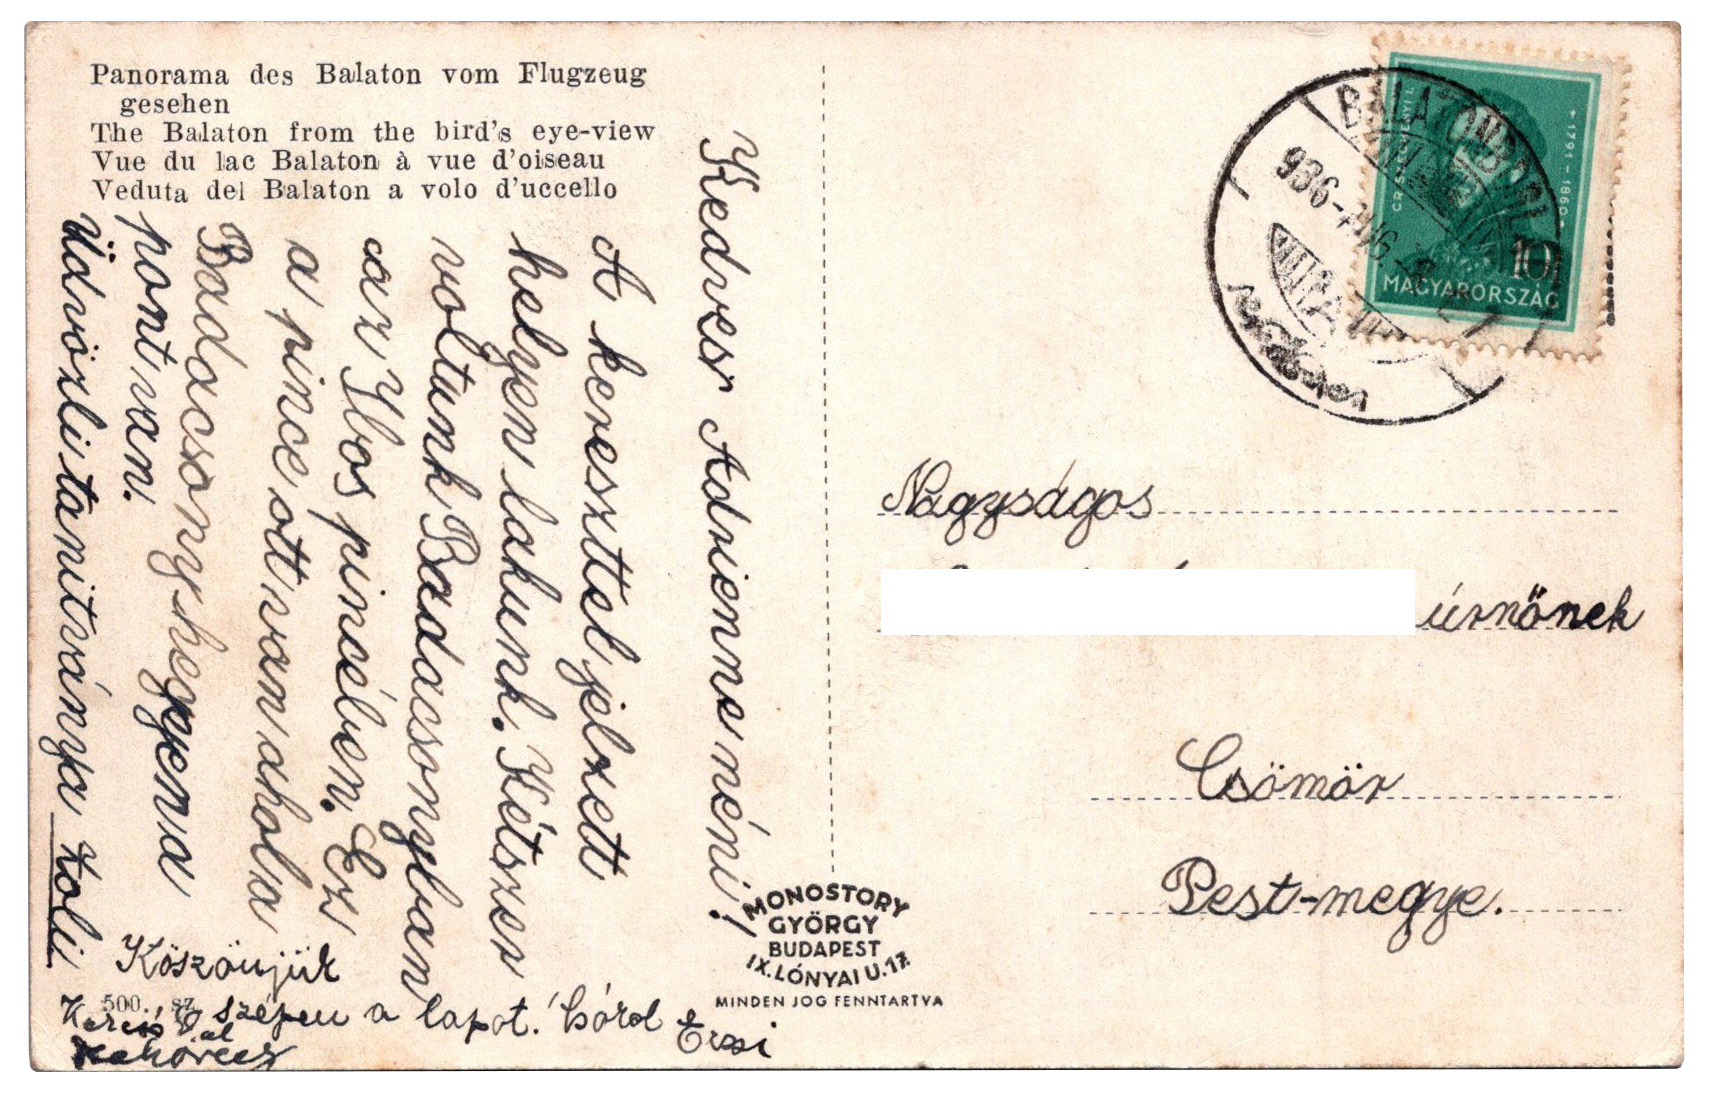 Panorama des Balaton vom Flugzeug
gesehen
The Balaton from the bird's eye-view
Vue du lac Balaton à vue d'oiseau
Veduta del Balaton a volo d'uccello
Kedves Adrienne néni!
A kereszttel jelzett
helyen lakunk. Kétszer
voltunk Badacsonyban
az Ibos pincében. Ez
a pince ott van ahol a
Badacsony hegyen a
pont van.
Üdvözli tanitványa Loli
Köszönjük
szépen a lapot. Csórol
Erzsi
500. sz.
MONOSTORY
GYÖRGY
BUDAPEST
IX. LÓNYAI U. 17.
MINDEN JOG FENNTARTVA
BALATONBOGLÁR
936 AUG
1791-1860
10
MAGYARORSZÁG
Nagyságos
úrnőnek
Csömör
Pest-megye.